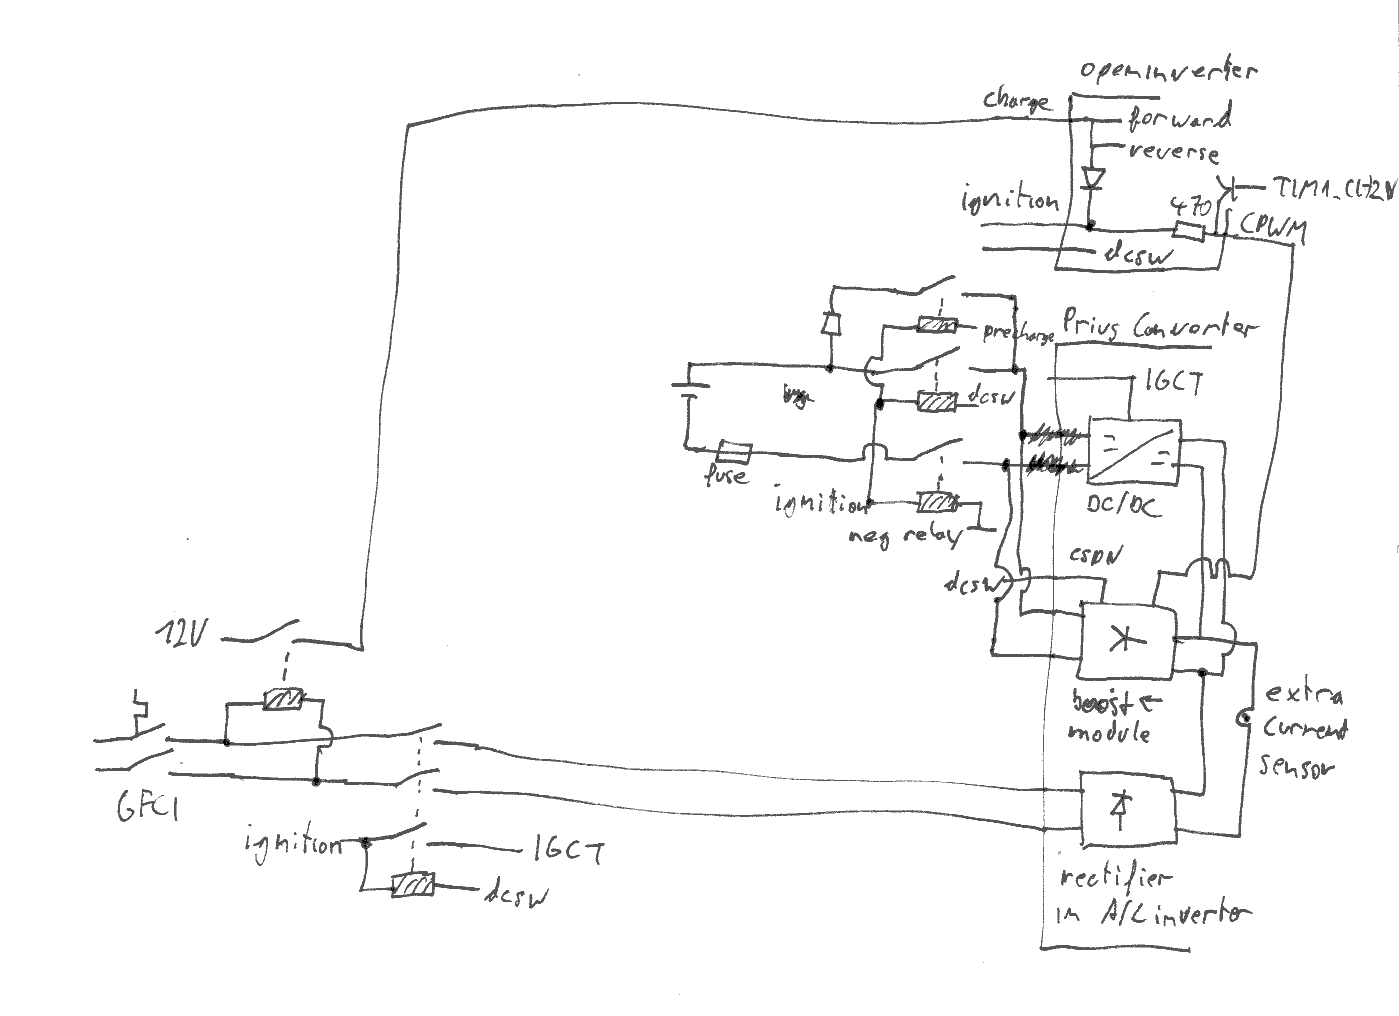 openinverter
charge
forward
reverse
ignition
470
CPWM
dcsw
precharge
Prius Converter
IGCT
dcsw
fuse
ignition
DC/DC
neg relay
CSDN
dcsw
12V
boost
module
extra
current
sensor
GFCI
ignition
IGCT
dcsw
rectifier
in A/C invertor